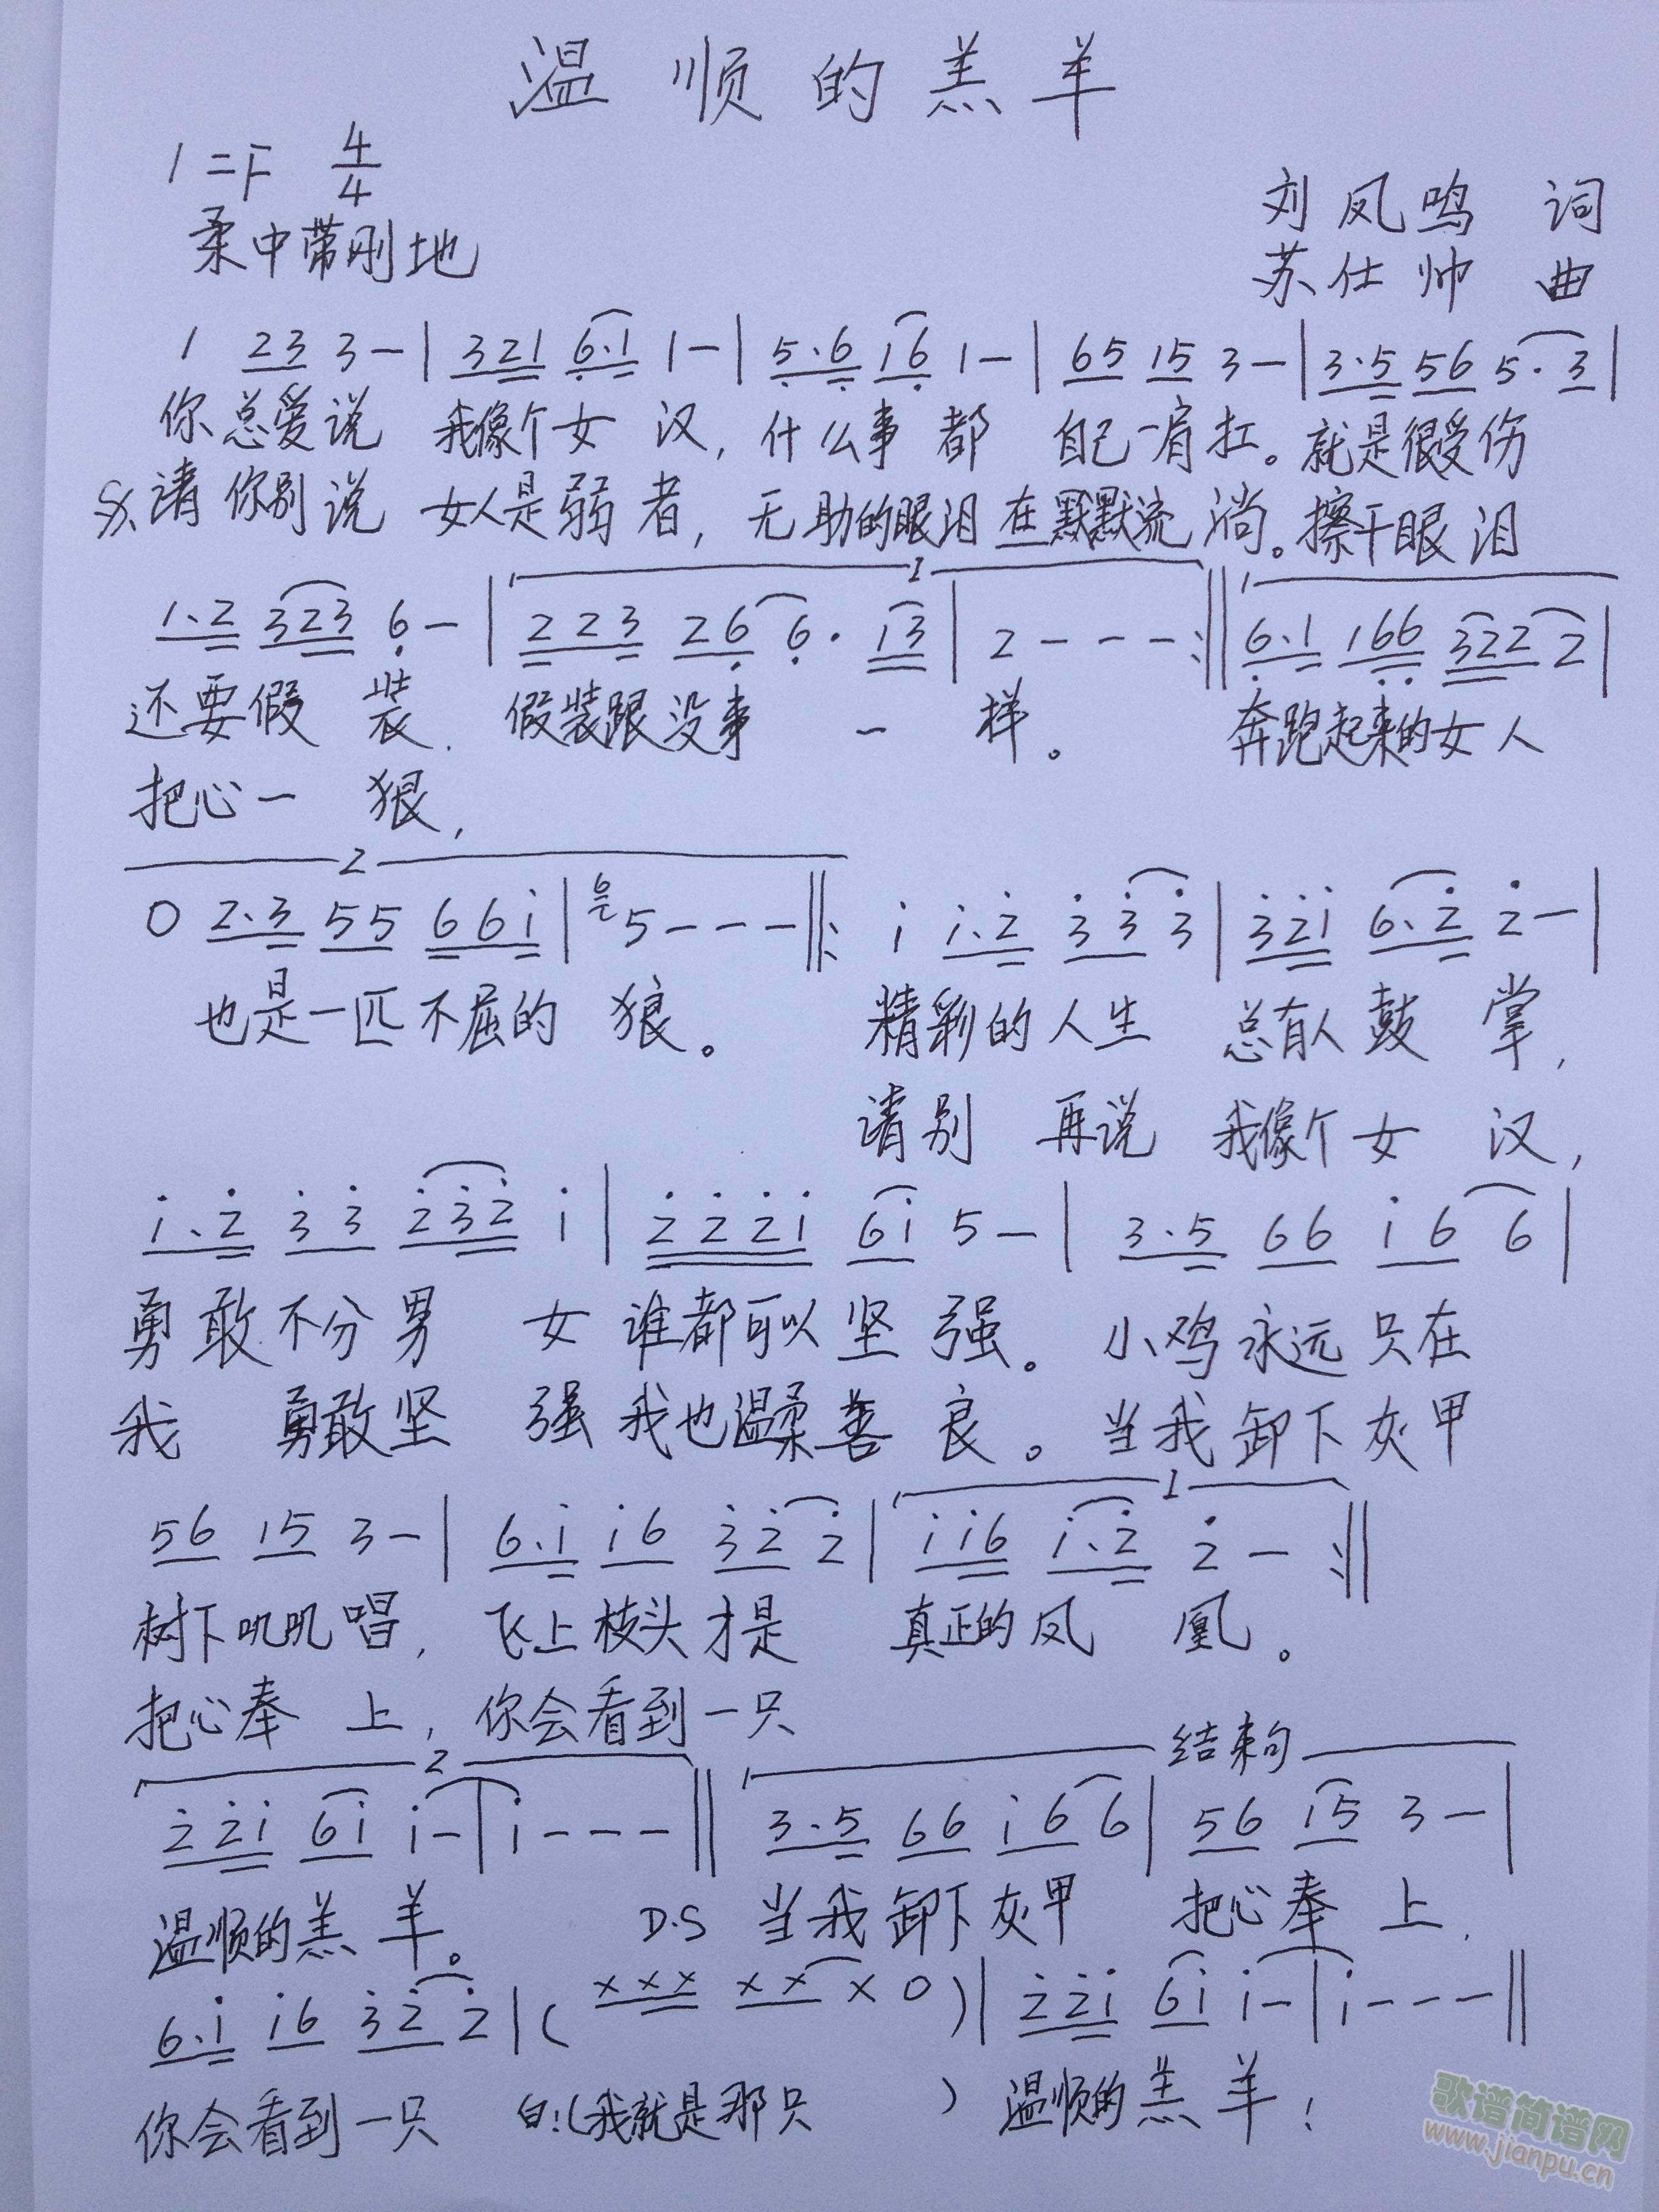 温顺的羔羊
1=F 4/4
柔中带刚地
刘凤鸣 词
苏仕帅 曲
1 23 3 - | 321 6·1 1 - | 5·6 16 1 - | 65 15 3 - | 3·5 56 5· 3 |
你总爱说 我像个女汉, 什么事都 自己一肩扛。就是很受伤
请你别说 女人是弱者, 无助的眼泪在默默流淌。擦干眼泪
1·2 323 6 - | 1 223 26 6· 13 | 2 - - - :|| 6·1 166 322 2 |
还要假装. 假装跟没事一样。 奔跑起来的女人
把心一狠,
2
0 2·3 55 661 | 6 5 - - - ||: 1 1·2 33 3 | 321 6·2 2 - |
也是一匹不屈的狼。 精彩的人生 总有人鼓掌,
请别再说 我像个女汉,
1·2 33 232 1 | 2221 61 5 - | 3·5 66 16 6 |
勇敢不分男女谁都可以坚强。小鸡永远只在
我勇敢坚强我也温柔善良。当我卸下灰甲
1
56 15 3 - | 6·1 16 32 2 | 116 1·2 2 - :||
树下叽叽唱, 飞上枝头才是 真正的凤凰。
把心奉上, 你会看到一只
2 结束句
221 61 1 - | 1 - - - || 3·5 66 16 6 | 56 15 3 - |
温顺的羔羊。 D.S 当我卸下灰甲 把心奉上.
6·1 16 32 2 | ( xxx xx x 0 ) | 221 61 1 - | 1 - - - ||
你会看到一只 白:(我就是那只 ) 温顺的羔羊!
歌谱简谱网
www.jianpu.cn